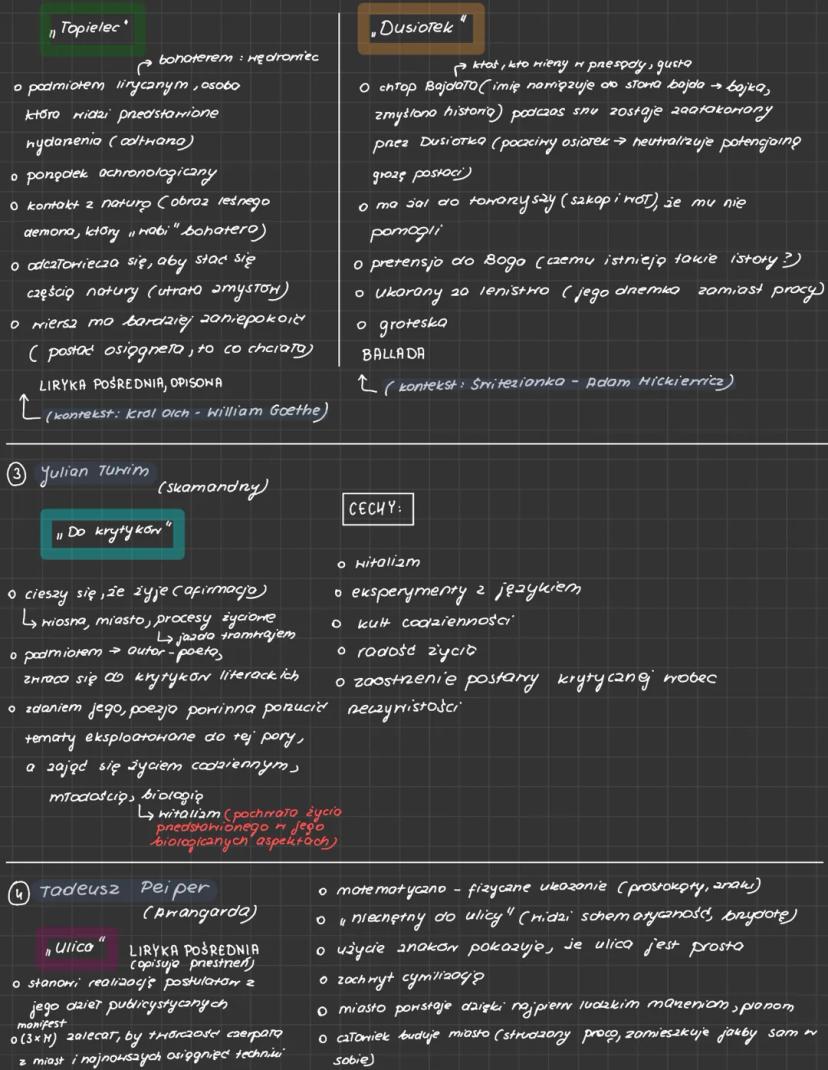 „Topielec"
→ bohaterem: wędrowiec
o podmiotem lirycznym, osoba
która widzi przedstawione
wydarzenia (odtwarza)
o porządek achronologiczny
o kontakt z naturą (obraz leśnego
demona, który „wabi" bohatera)
o odczłowiecza się, aby stać się
częścią natury (utrata zmysłów)
o wiersz ma bardziej zaniepokoić
(postać osiągnęła, to co chciała)
LIRYKA POŚREDNIA, OPISOWA
(kontekst: Król Olch - William Goethe)
„Dusiołek"
→ ktoś, kto wierzy w przesądy, gusła
o chłop Bajdała (imię nawiązuje do słowa bajda → bajka,
zmyślona historia) podczas snu zostaje zaatakowany
przez Dusiołka (poczciwy osiołek → neutralizuje potencjalną
grozę postaci)
o ma żal do towarzyszy (szkap i wół), że mu nie
pomogli
o pretensja do Boga (czemu istnieją takie istoty?)
o ukarany za lenistwo (jego drzemka zamiast pracy)
o groteska
BALLADA
(kontekst: Świtezianka - Adam Mickiewicz)
③ Julian Tuwim
(skamandry)
„Do krytyków"
o cieszy się, że żyje (afirmacja)
↳ wiosna, miasto, procesy życiowe
↳ jazda tramwajem
o podmiotem → autor-poeta,
zwraca się do krytyków literackich
o zdaniem jego, poezja powinna porzucić
tematy eksploatowane do tej pory,
a zająć się życiem codziennym,
młodością, biologią
↳ witalizm (pochwała życia
przedstawionego w jego
biologicznych aspektach)
CECHY:
o witalizm
o eksperymenty z językiem
o kult codzienności
o radość życia
o zaostrzenie postawy krytycznej wobec
rzeczywistości
④ Tadeusz Peiper
(Awangarda)
„Ulica"
LIRYKA POŚREDNIA
(opisuje przestrzeń)
o stanowi realizację postulatów z
jego dzieł publicystycznych
manifest
o (3xM) zalecał, by twórczość czerpała
z miast i najnowszych osiągnięć techniki
o matematyczno - fizyczne ukazanie (prostokąty, znaki)
o „niechętny do ulicy" (widzi schematyczność, brzydotę)
o użycie znaków pokazuje, że ulica jest prosta
o zachwyt cywilizacją
o miasto powstaje dzięki najpierw ludzkim marzeniom, planom
o człowiek buduje miasto (strudzony pracą, zamieszkuje jakby sam w
sobie)